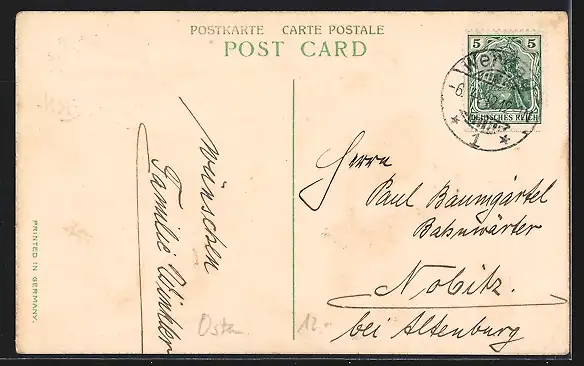 POSTKARTE CARTE POSTALE
POST CARD
5 5
DEUTSCHES REICH
1
wünschen
Familie Winkler
Herrn
Paul Baumgärtel
Bahnwärter
Nobitz.
bei Altenburg
PRINTED IN GERMANY.
Ostern
12.-